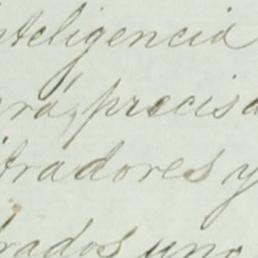 nteligencia
ará, precisa
tradores y
rados uno